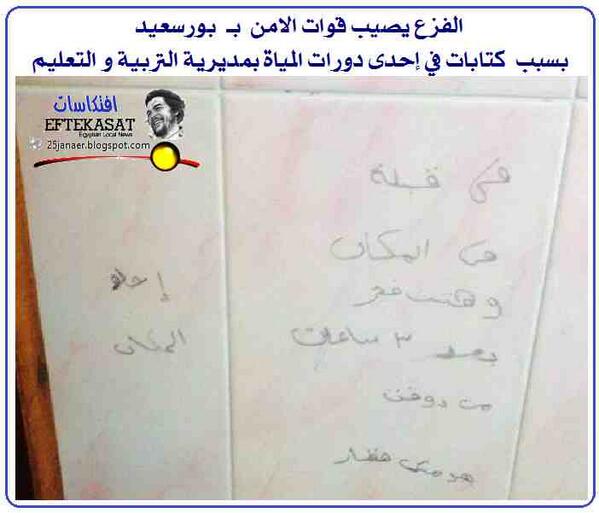 الفزع يصيب قوات الامن بـ بورسعيد
بسبب كتابات في إحدى دورات المياة بمديرية التربية و التعليم
افتكاسات
EFTEKASAT
Egyptian Local News
25janaer.blogspot.com
فى قنبلة
فى المكان
وهتنفجر
بعد ٣ ساعات
من دوقت
إخلو
المكان